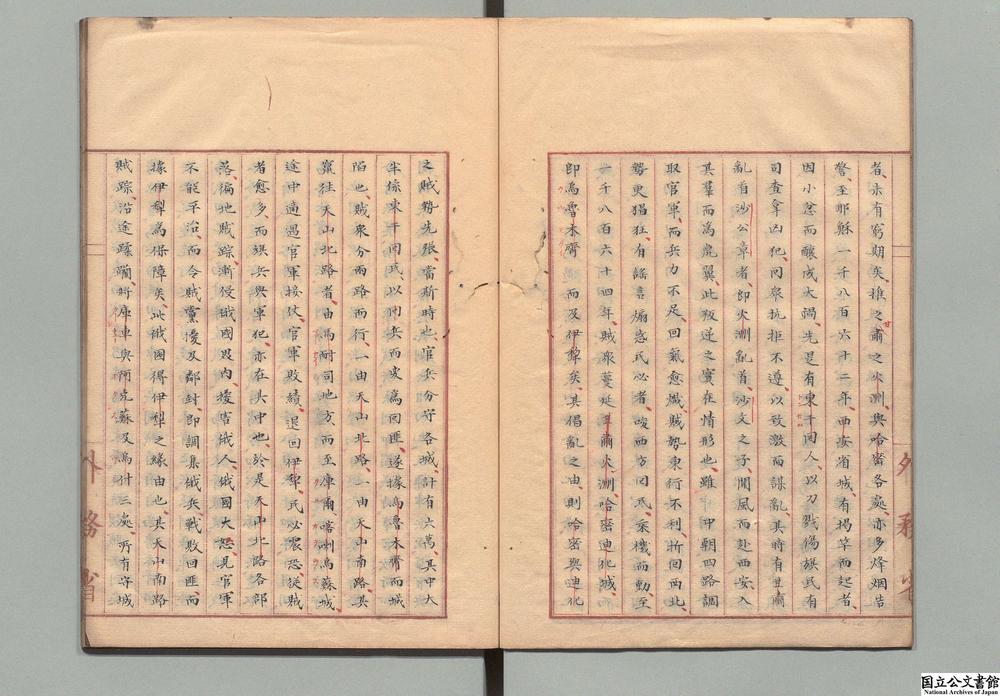 者、未有窮期矣、推之肅之火洲、與哈密各處、亦多烽烟告
甘
警、至耶穌一千八百六十二年、西安省城、有揭竿而起者、
因小忿而釀成大禍、先是有東干回人、以刀戮傷旗民、有
司查拿凶犯、回衆抗拒不遵、以致激而謀亂、其時有甘肅
亂首沙公章者、即火洲亂首、沙文之子、聞風而赴西安、入
其羣而為虎翼、此叛逆之實在情形也、雖中朝四路調
取官軍、而兵力不足、回氣愈熾、賊勢東行不利、折回西北、
勢更猖狂、有謠言煽惑民心者、唆西方回民、乘機而動、至
一千八百六十四年、賊衆蔓延甘肅火洲哈密迪化城、
即烏魯木齊而及伊犁矣、其倡亂之由、則哈密與迪化
之賊勢先張、當斯時也、官兵分守各城、計有六萬、其中大
半係東干回民、以衛兵而變為回匪、遂據烏魯木齊而城
陷也、賊衆分兩路而行、一由天山北路、一由天山南路、其
竄往天山北路者、由瑪耐司地方、而至庫爾喀喇烏蘇城、
途中適遇官軍接仗、官軍敗績、退回伊犁、民心震恐、從賊
者愈多、而旗兵與軍犯、亦在其中也、於是天山北路各部
落、徧地賊踪、漸侵俄國界内、擾害俄人、俄國大怒、見官軍
不能平治、而令賊黨擾及鄰封、即調集俄兵、戰敗回匪、而
據伊犁為保障矣、此俄國得伊犁之緣由也、其天山南路
賊踪、沿途蹂躪、時庫車與阿克蘇及烏什三處、所有守城
外務省
外務省
国立公文書館
National Archives of Japan